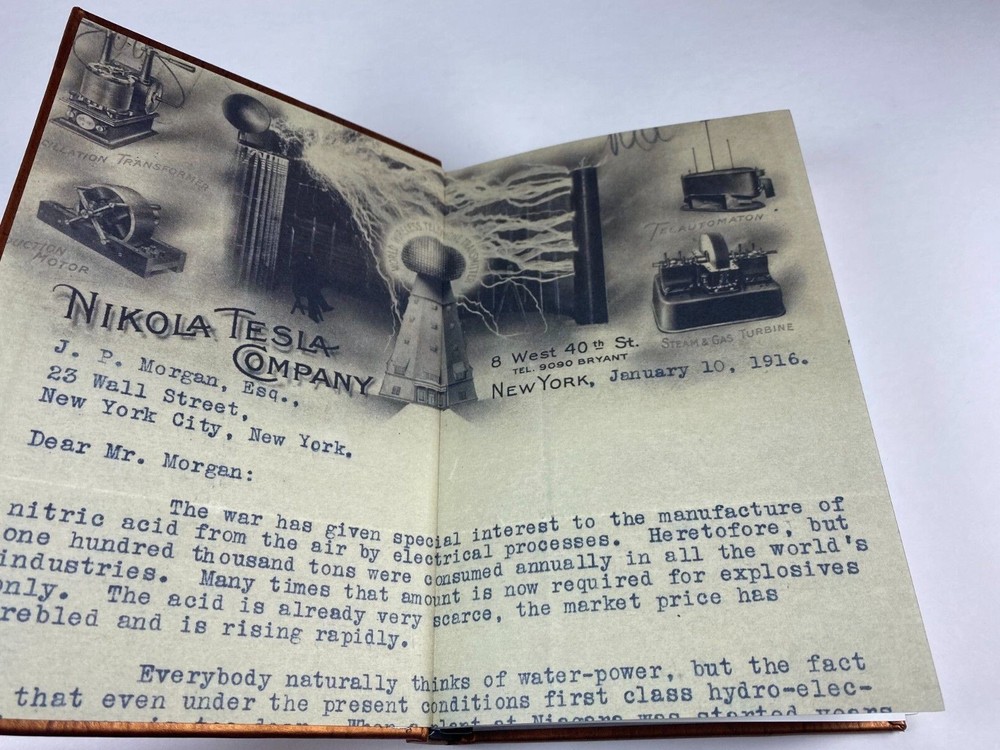 OSCILLATION TRANSFORMER
TELAUTOMATON
INDUCTION MOTOR
STEAM & GAS TURBINE
NIKOLA TESLA
COMPANY
8 West 40th St.
TEL. 9090 BRYANT
NEW YORK, January 10, 1916.
J. P. Morgan, Esq.,
23 Wall Street,
New York City, New York.
Dear Mr. Morgan:
The war has given special interest to the manufacture of
nitric acid from the air by electrical processes. Heretofore, but
one hundred thousand tons were consumed annually in all the world's
industries. Many times that amount is now required for explosives
only. The acid is already very scarce, the market price has
rebled and is rising rapidly.
Everybody naturally thinks of water-power, but the fact
that even under the present conditions first class hydro-elec-
plant at Niagara was started years